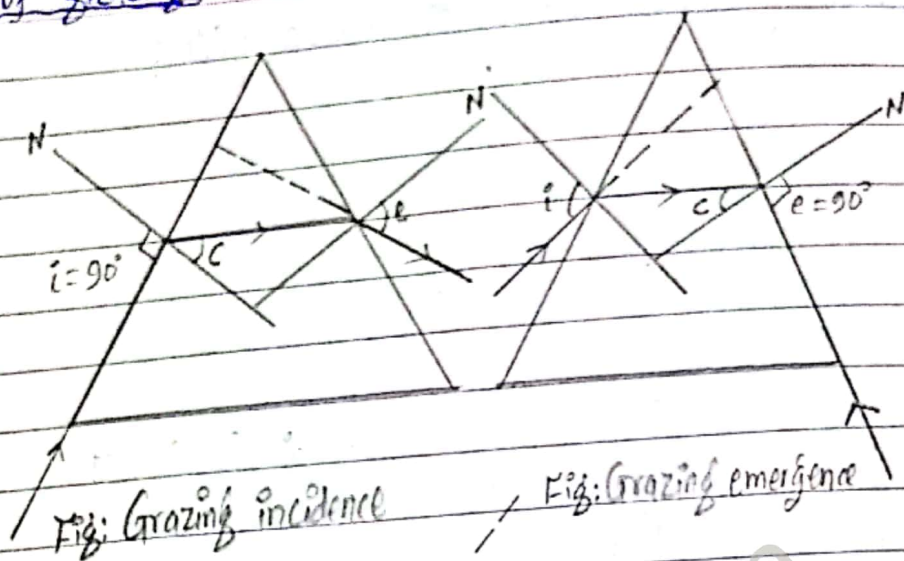 N
N
N
i
c
e = 90°
e
i = 90°
c
Fig: Grazing incidence
Fig: Grazing emergence